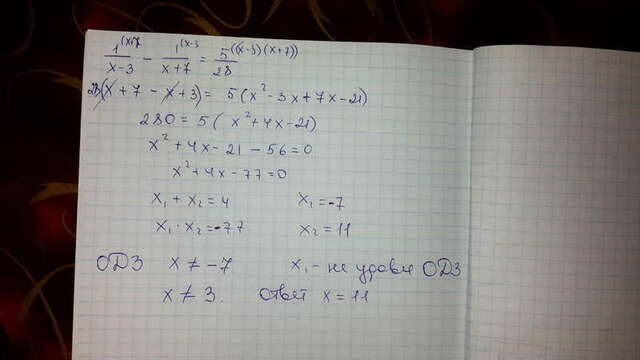 1(x+7 / x-3 - 1(x-3 / x+7 = 5((x-3)(x+7)) / 28
28(x+7-x+3) = 5(x²-3x+7x-21)
280 = 5(x²+4x-21)
x²+4x-21-56=0
x²+4x-77=0
x₁+x₂=4 x₁=-7
x₁·x₂=-77 x₂=11
ОДЗ x≠-7 x₁- не удовл ОДЗ
x≠3. Ответ x=11